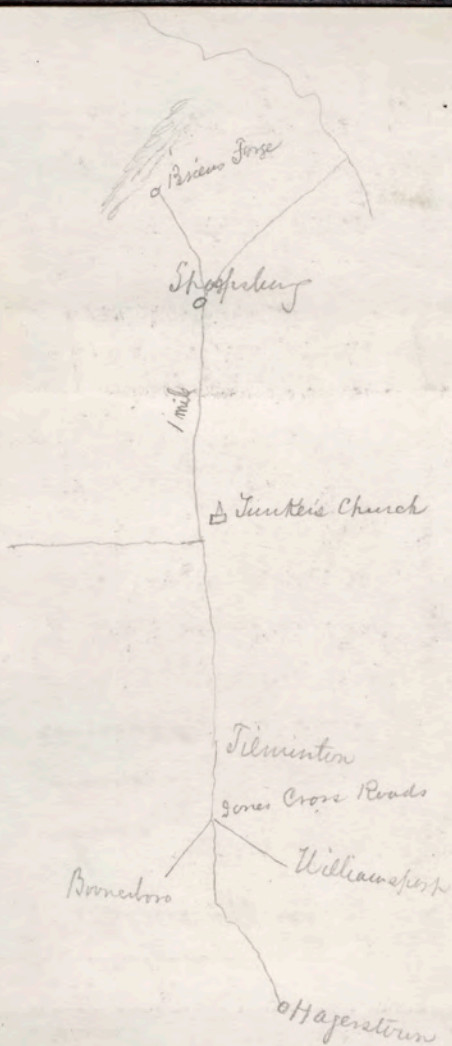 Briens Forge
Sharpsburg
1 mile
Tunkers Church
Tilminton
Jones Cross Roads
Boonesboro
Williamsport
Hagerstown